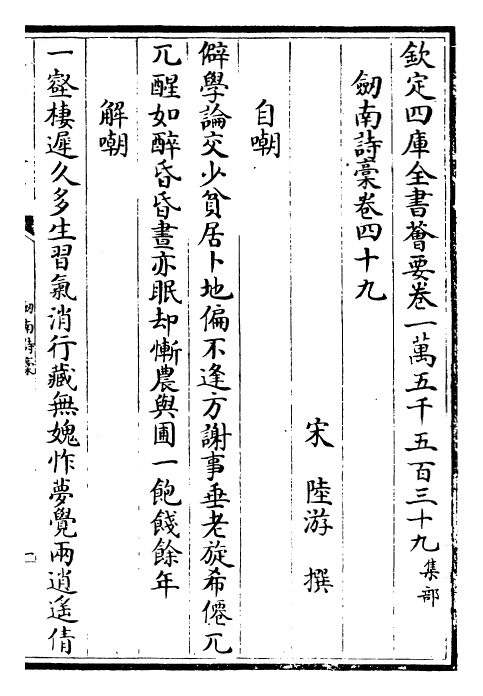 欽定四庫全書薈要卷一萬五千五百三十九集部
劒南詩藁卷四十九
宋陸游撰
自嘲
僻學論交少貧居卜地偏不逢方謝事垂老旋希僊兀
兀醒如醉昏昏晝亦眠却慚農與圃一飽餞餘年
解嘲
一壑棲遲久多生習氣消行藏無媿怍夢覺兩逍遙倩
劒南詩藁
一